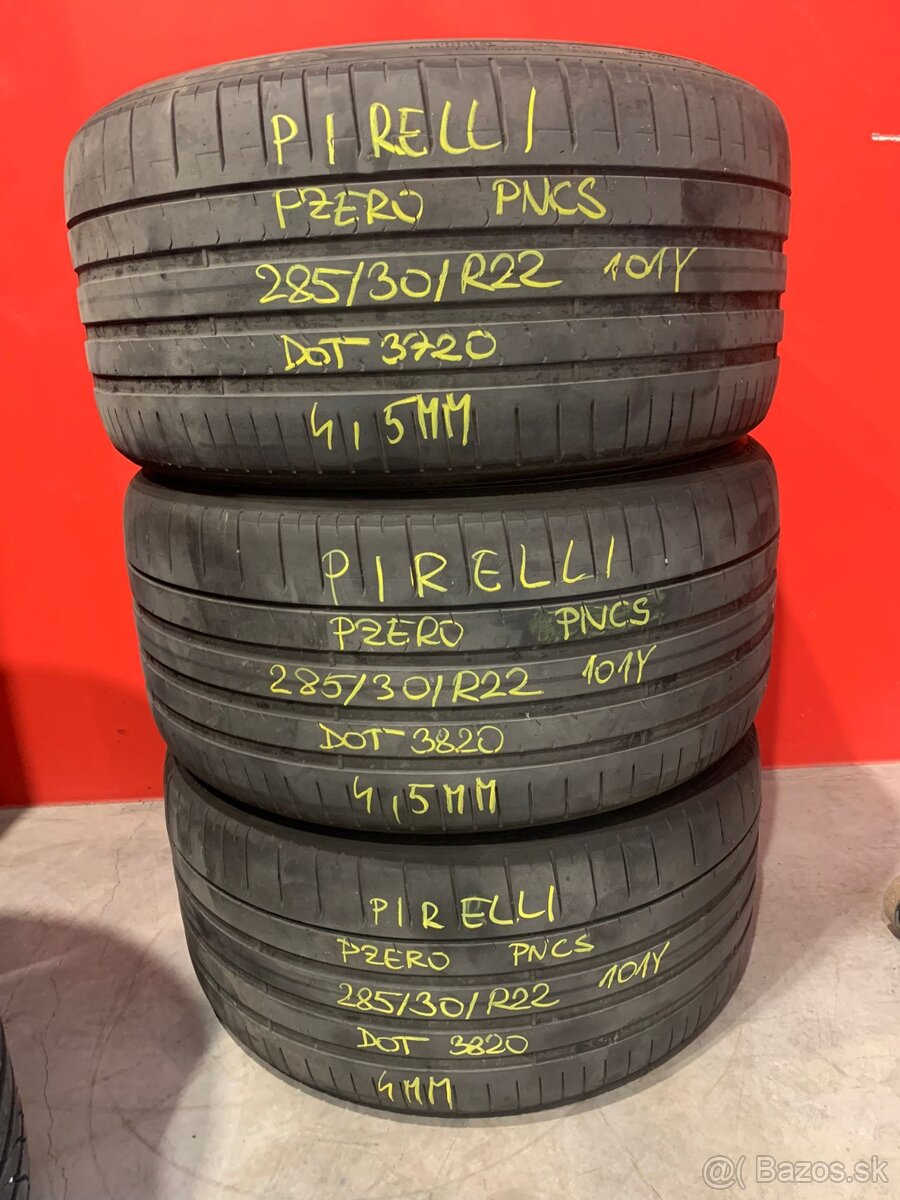 PIRELLI
PZERO PNCS
285/30/R22 101Y
DOT 3720
4,5MM
PIRELLI
PZERO PNCS
285/30/R22 101Y
DOT 3820
4,5MM
PIRELLI
PZERO PNCS
285/30/R22 101Y
DOT 3820
4MM
@( Bazos.sk